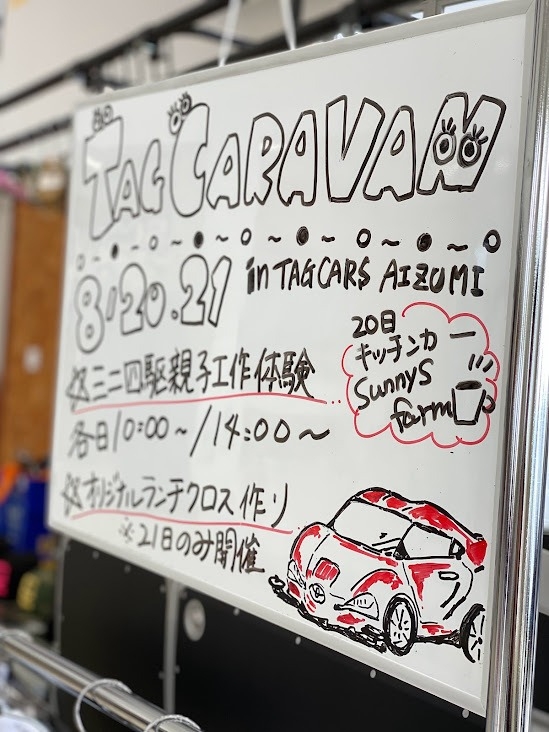 TAG CARAVAN
8/20.21
in TAGCARS AIZUMI
20日
キッチンカー
Sunnys
farm
☆ミニ四駆親子工作体験
各日10:00~/14:00~
☆オリジナルランチクロス作り
※21日のみ開催